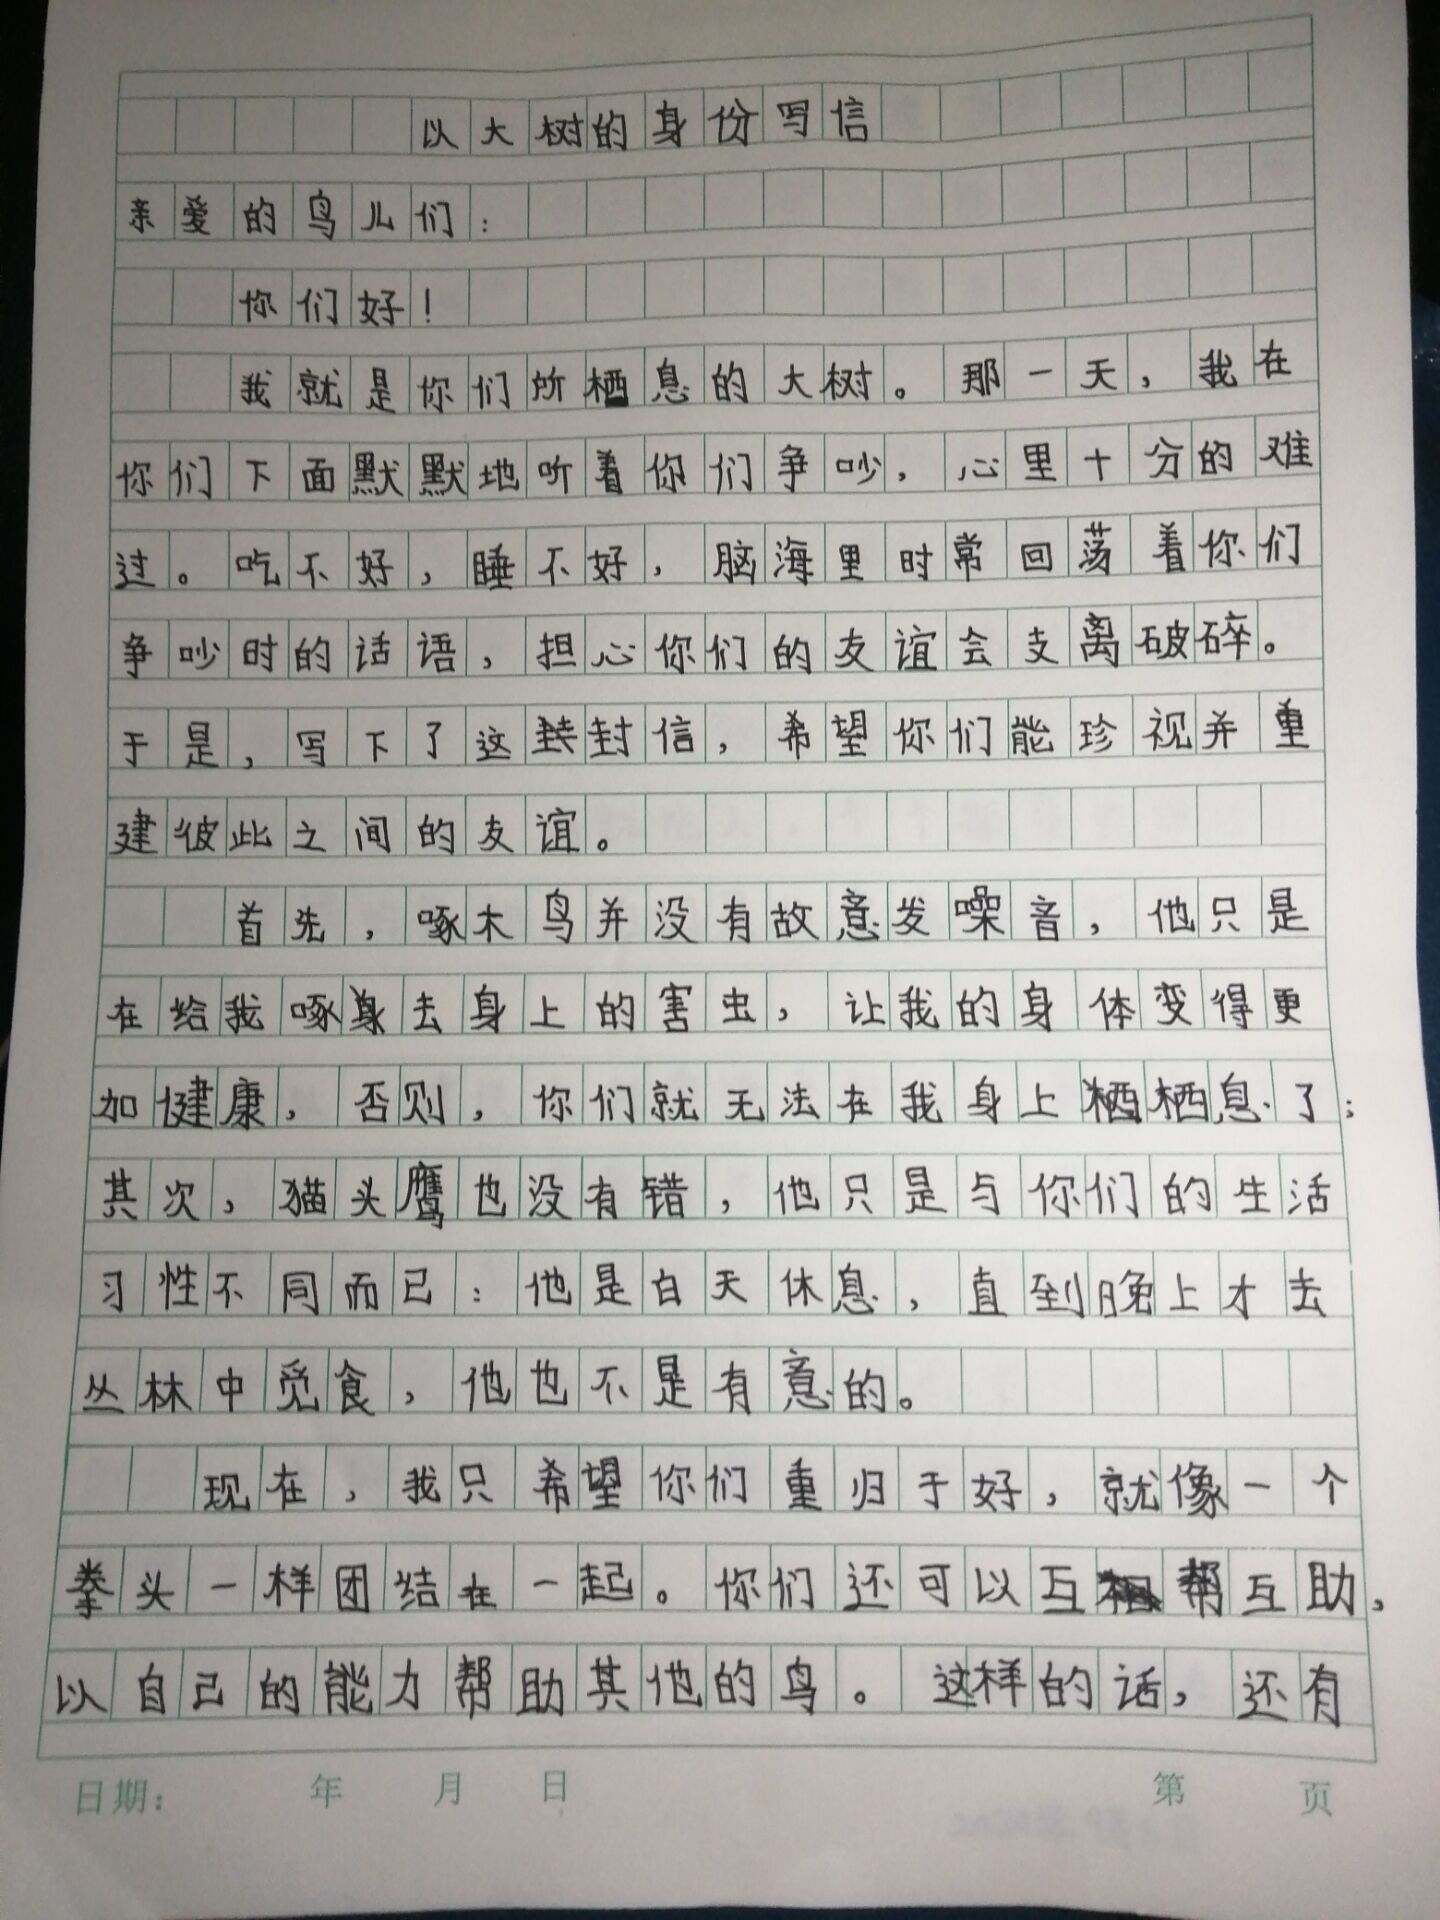 以大树的身份写信
亲爱的鸟儿们：
你们好！
我就是你们所栖息的大树。那一天，我在
你们下面默默地听着你们争吵，心里十分的难
过。吃不好，睡不好，脑海里时常回荡着你们
争吵时的话语，担心你们的友谊会支离破碎。
于是，写下了这封封信，希望你们能珍视并重
建彼此之间的友谊。
首先，啄木鸟并没有故意发噪音，他只是
在给我啄身去身上的害虫，让我的身体变得更
加健康，否则，你们就无法在我身上栖栖息了；
其次，猫头鹰也没有错，他只是与你们的生活
习性不同而已：他是白天休息，直到晚上才去
丛林中觅食，他也不是有意的。
现在，我只希望你们重归于好，就像一个
拳头一样团结在一起。你们还可以互帮互助，
以自己的能力帮助其他的鸟。这样的话，还有
日期： 年 月 日 第 页